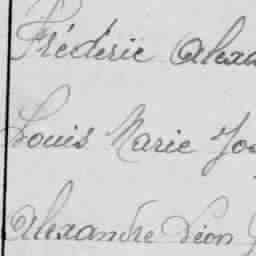 Fréderic Alexa
Louis Marie Jos
Alexandre Léon